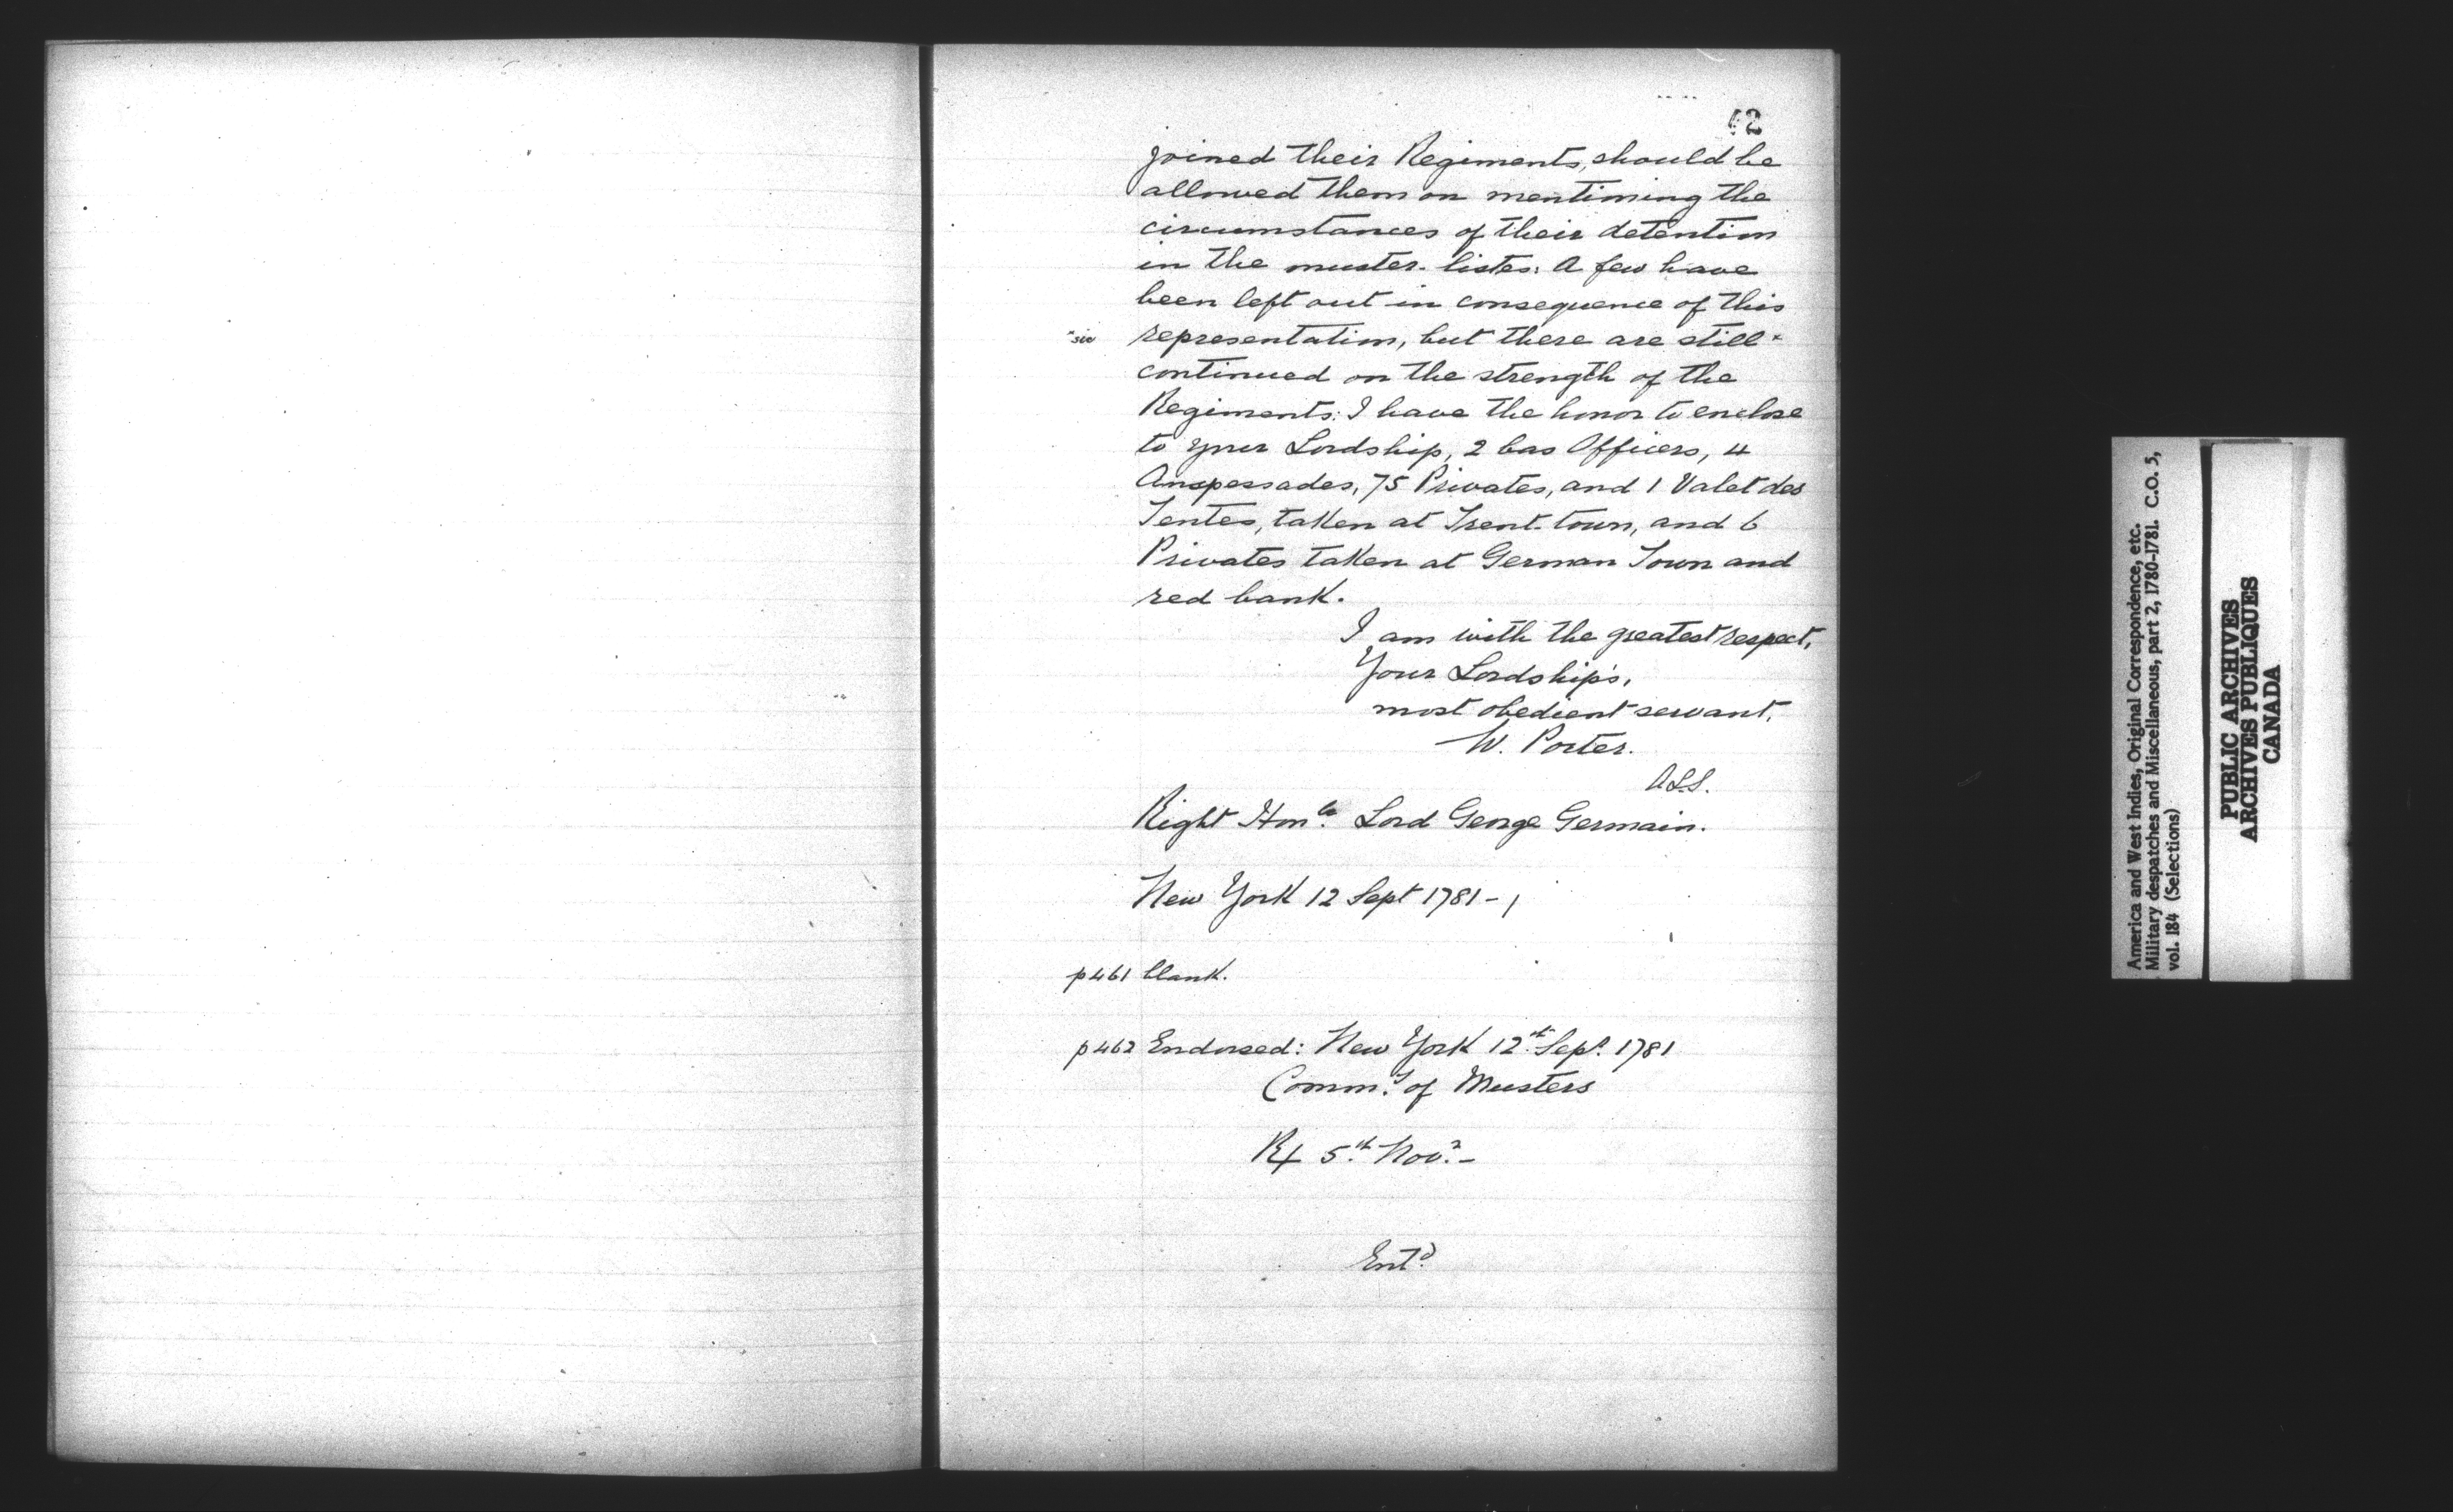 42
joined their Regiments, should be
allowed them on mentioning the
circumstances of their detention
in the muster-listes: A few have
been left out in consequence of this
*sic representation, but there are still*
continued on the strength of the
Regiments: I have the honor to enclose
to your Lordship, 2 bas Officers, 4
Anspessades, 75 Privates, and 1 Valet des
Tentes, taken at Trent-town, and 6
Privates taken at German Town and
red bank.
I am with the greatest respect,
Your Lordship's,
most obedient servant,
W. Porter.
A.L.S.
Right Honle. Lord George Germain.
New York 12 Sept 1781 -
p461 blank.
p462 Endorsed: New York 12th Sept. 1781
Commy of Musters
R/ 5th Novr. -
Entd
America and West Indies, Original Correspondence, etc.
Military despatches and Miscellaneous, part 2, 1780-1781. C.O. 5,
vol. 184 (Selections)
PUBLIC ARCHIVES
ARCHIVES PUBLIQUES
CANADA